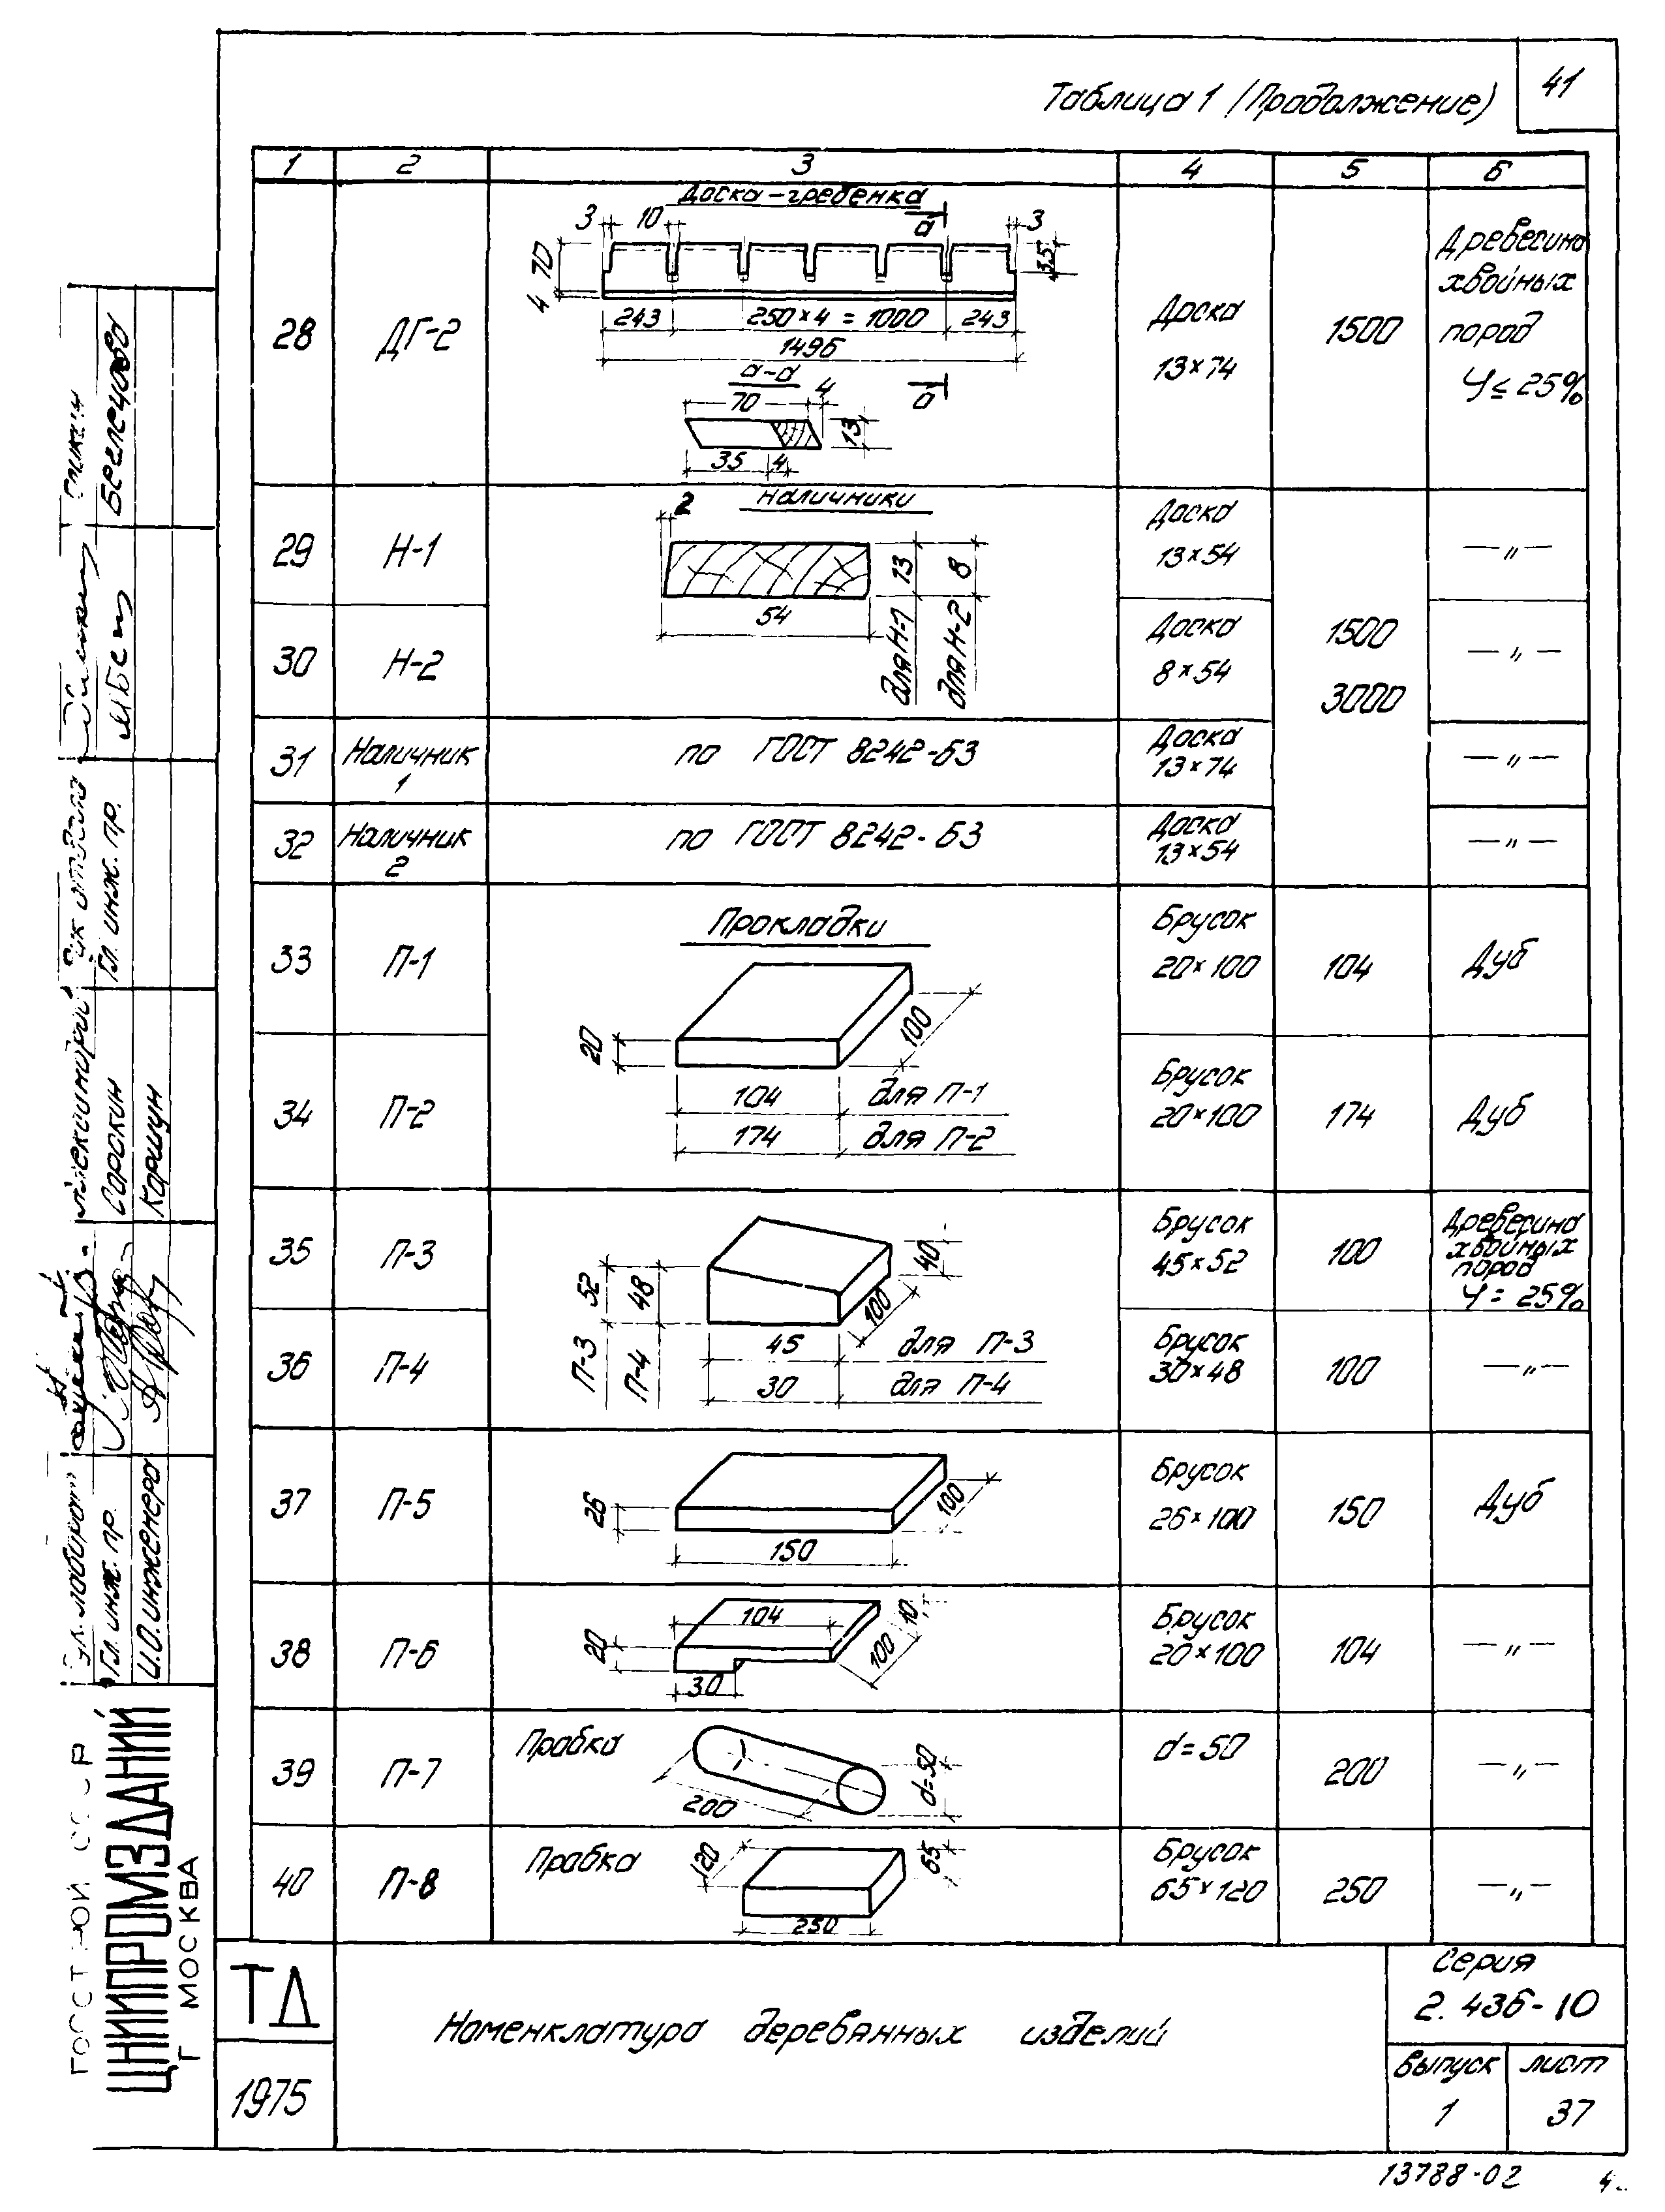 41
Таблица 1 (Продолжение)
1 2 3 4 5 6
Доска-гребенка
3 10 а 3
70 4 35
243 250×4 = 1000 243
1496
а-а
70 4 а
13
35 4
28 ДГ-2 Доска 13×74 1500
Древесина
хвойных
пород
φ ≤ 25%
Наличники
2
54
13 8
для Н-1 для Н-2
29 Н-1 Доска 13×54 —〃—
30 Н-2 Доска 8×54 —〃—
1500
3000
31 Наличник 1 по ГОСТ 8242-63 Доска 13×74 —〃—
32 Наличник 2 по ГОСТ 8242-63 Доска 13×54 —〃—
Прокладки
33 П-1 Брусок 20×100 104 Дуб
20 100
104 для П-1
174 для П-2
34 П-2 Брусок 20×100 174 Дуб
35 П-3 Брусок 45×52 100
Древесина
хвойных
пород
φ = 25%
52 48 40 100
П-3 П-4
45 для П-3
30 для П-4
36 П-4 Брусок 30×48 100 —〃—
37 П-5 Брусок 26×100 150 Дуб
26 100
150
38 П-6 Брусок 20×100 104 —〃—
104 10
20 100
30
39 П-7 Пробка d=50 200 —〃—
200 d=50
40 П-8 Пробка Брусок 65×120 250 —〃—
120 65
250
ТД
1975
Номенклатура деревянных изделий
Серия
2.436-10
Выпуск лист
1 37
13788-02
ГОССТРОЙ СССР
ЦНИИПРОМЗДАНИЙ
Г МОСКВА
Гл. инж. пр.
И.О. инженера
Сорокин
Коршун
Рук отдела
Гл. инж. пр.
Беглецова